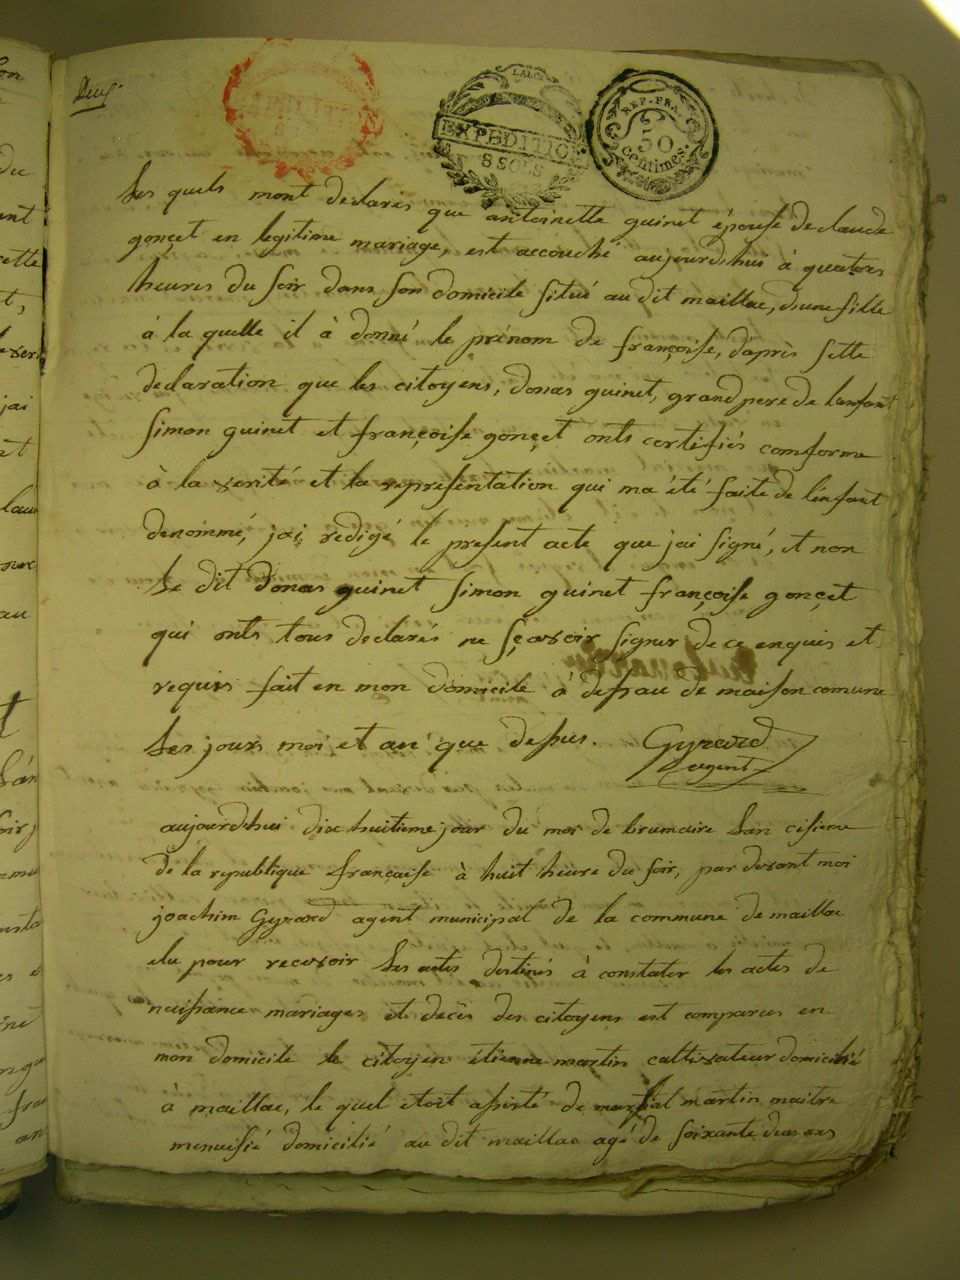 Deux
EXPEDITION
8 SOLS
REP. FRA.
50
centimes.
Les quels mont declarés que antoinette guinet épouse de claude
gonçet en legitime mariage, est accouché aujourdhui à quatres
heures du soir dans son domicile situé au dit maillac, dune fille
à la quelle il à donné le prénom de françoise, daprès sette
declaration que les citoyens, donas guinet, grand pere de lenfant
simon guinet et françoise gonçet onts certifiés comforme
à la verité et la representation qui ma été faite de lenfant
denommé, jai redigé le present acte que jai signé, et non
le dit donas guinet simon guinet françoise gonçet
qui onts tous declarés ne sçavoir signer de ce enquis et
requis fait en mon domicile à defsau de maison comune
Les jours moi et an que dessus. Gyrard
agent
aujourdhui dix huitieme jour du mois de brumaire Lan cisieme
de la republique française à huit heure du soir, par devant moi
joachim Gyrard agent municipal de la commune de maillac
elu pour recevoir Les actes destinés à constater les actes de
naissance mariages et decès des citoyens est comparus en
mon domicile le citoyen étienne martin cultivateur domicilié
à maillac, le quel étoit assisté de martial martin maitre
menuisié domicilié au dit maillac agé de soixante deux ans